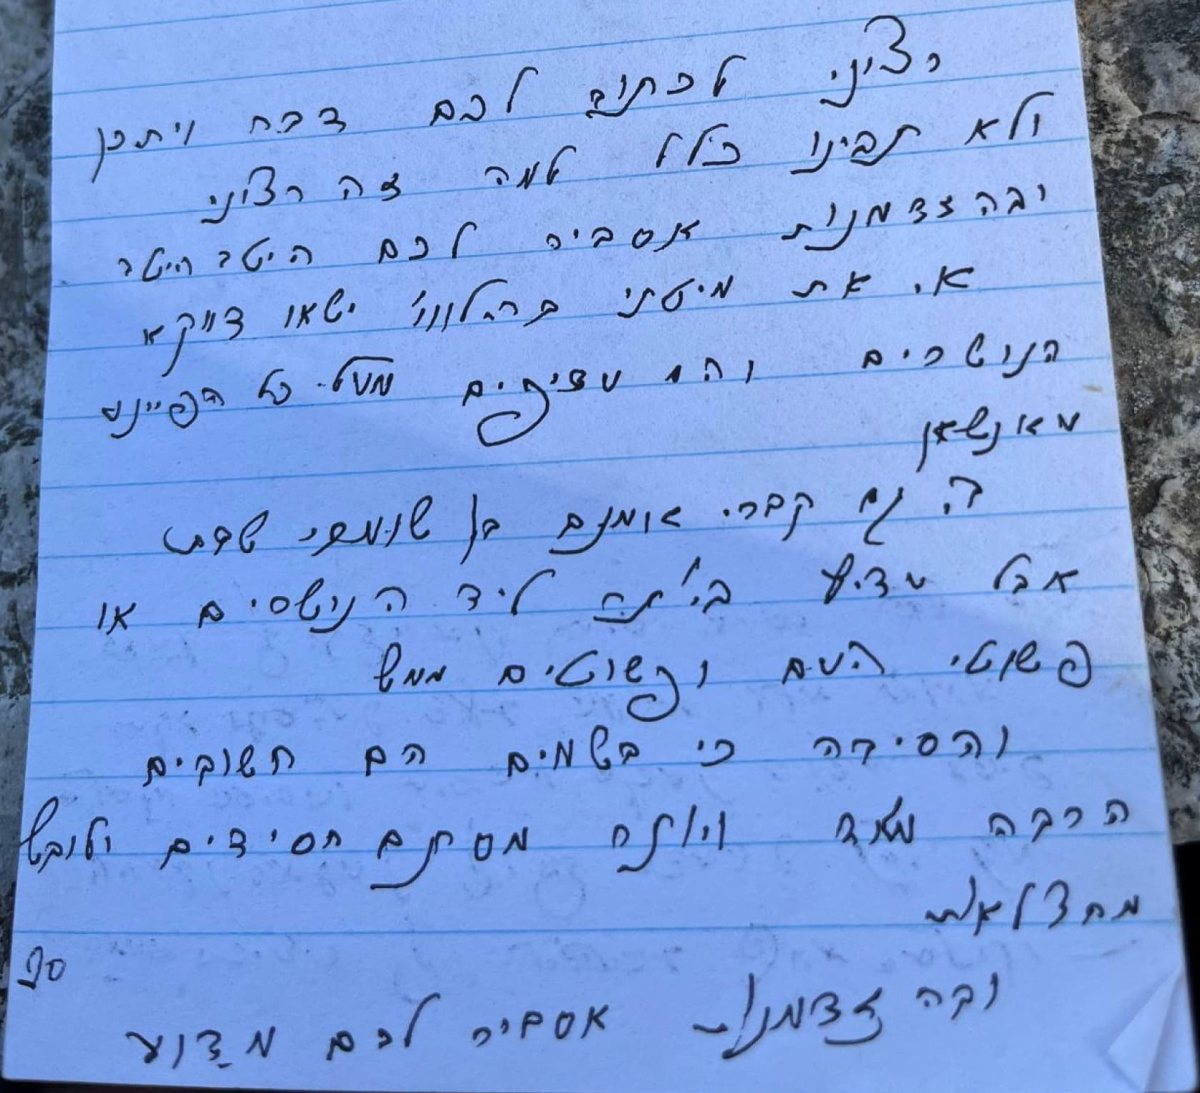 רציני לכתוב לכם דבר ויתכן
ולא תבינו כלל למה זה רציני
ובהזדמנות אסביר לכם היטב היטב
א. את מיטתי בהלווי' ישאו דווקא
הנושרים והם עדיפים מעל כל הפיינע
מאנשען
ב. גם קברי אומנם בן שומרי שבת
אבל עדיף בי'תר ליד הנושרים או
פשוטי העם ופשוטים ממש
והסיבה כי בשמים הם חשובים
הרבה מאד ויותר מסתם חסידים ולובשי
מחצלאות
ובהזדמנות אסביר לכם מדוע